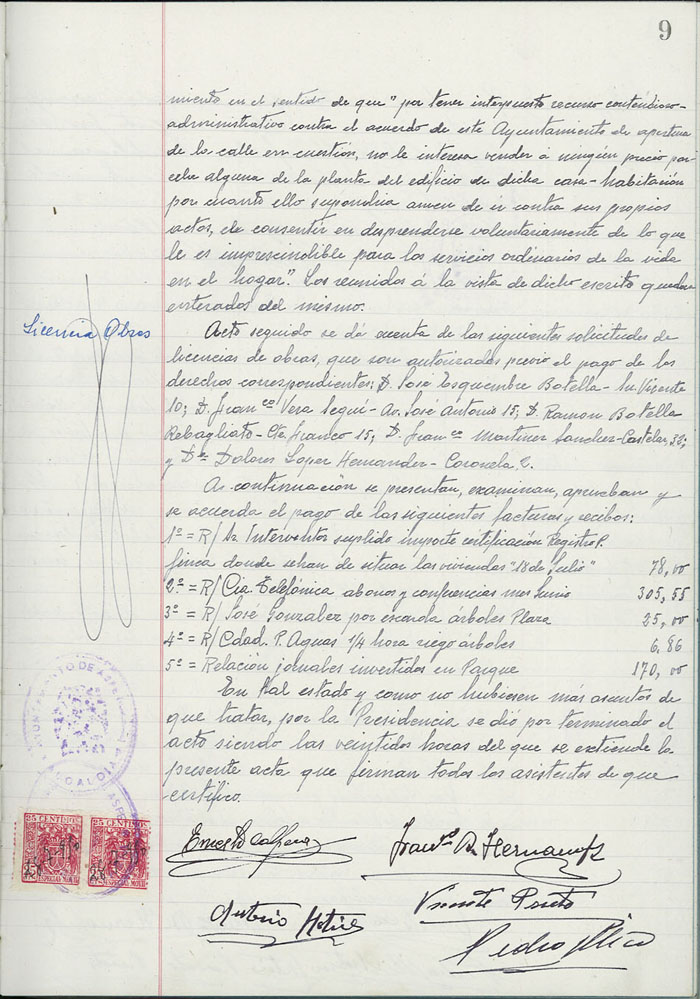 9
miento en el sentido de que "por tener interpuesto recurso contencioso-
administrativo contra el acuerdo de este Ayuntamiento de apertura
de la calle en cuestión, no le interesa vender á ningún precio par-
cela alguna de la planta del edificio de dicha casa-habitación
por cuanto ello supondria amen de ir contra sus propios
actos, de consentir en desprenderse voluntariamente de lo que
le es imprescindible para los servicios ordinarios de la vida
en el hogar". Los reunidos á la vista de dicho escrito quedan
enterados del mismo.
Licencia Obras
Acto seguido se dá cuenta de las siguientes solicitudes de
licencias de obras, que son autorizadas previo el pago de los
derechos correspondientes: D. José Esquembre Botella - Sn. Vicente
10; D. Franco Vera Seguí - Av. José Antonio 15; D. Ramon Botella
Rebagliato - Cte. Franco 15; D. Franco Martinez Sanchez - Castelar, 32;
y Dª Dolores Lopez Hernandez - Coronela, 2.
A continuación se presentan, examinan, aprueban y
se acuerda el pago de las siguientes facturas y recibos:
1º = R/ Sr. Interventor suplido importe certificación Registro P.
finca donde sehan de situar las viviendas "18 de Julio" 78,00
2º = R/ Cia. Telefónica abonos y conferencias mes Junio 305,55
3º = R/ José Gonzalez por escarda árboles Plaza 25,00
4º = R/ Cdad. P. Aguas 1/4 hora riego árboles 6,86
5º = Relación jornales invertidos en Parque 170,00
En tal estado y como no hubiesen más asuntos de
que tratar, por la Presidencia se dió por terminado el
acto siendo las veintidos horas del que se extiende la
presente acta que firman todos los asistentes de que
certifico.
AYUNTAMIENTO DE ASPE
ALCALDIA
25 CENTIMOS 25 CENTIMOS
ESPECIAL MOVIL ESPECIAL MOVIL
Ernesto
Hernandez
Antonio
Vicente Prieto
Pedro